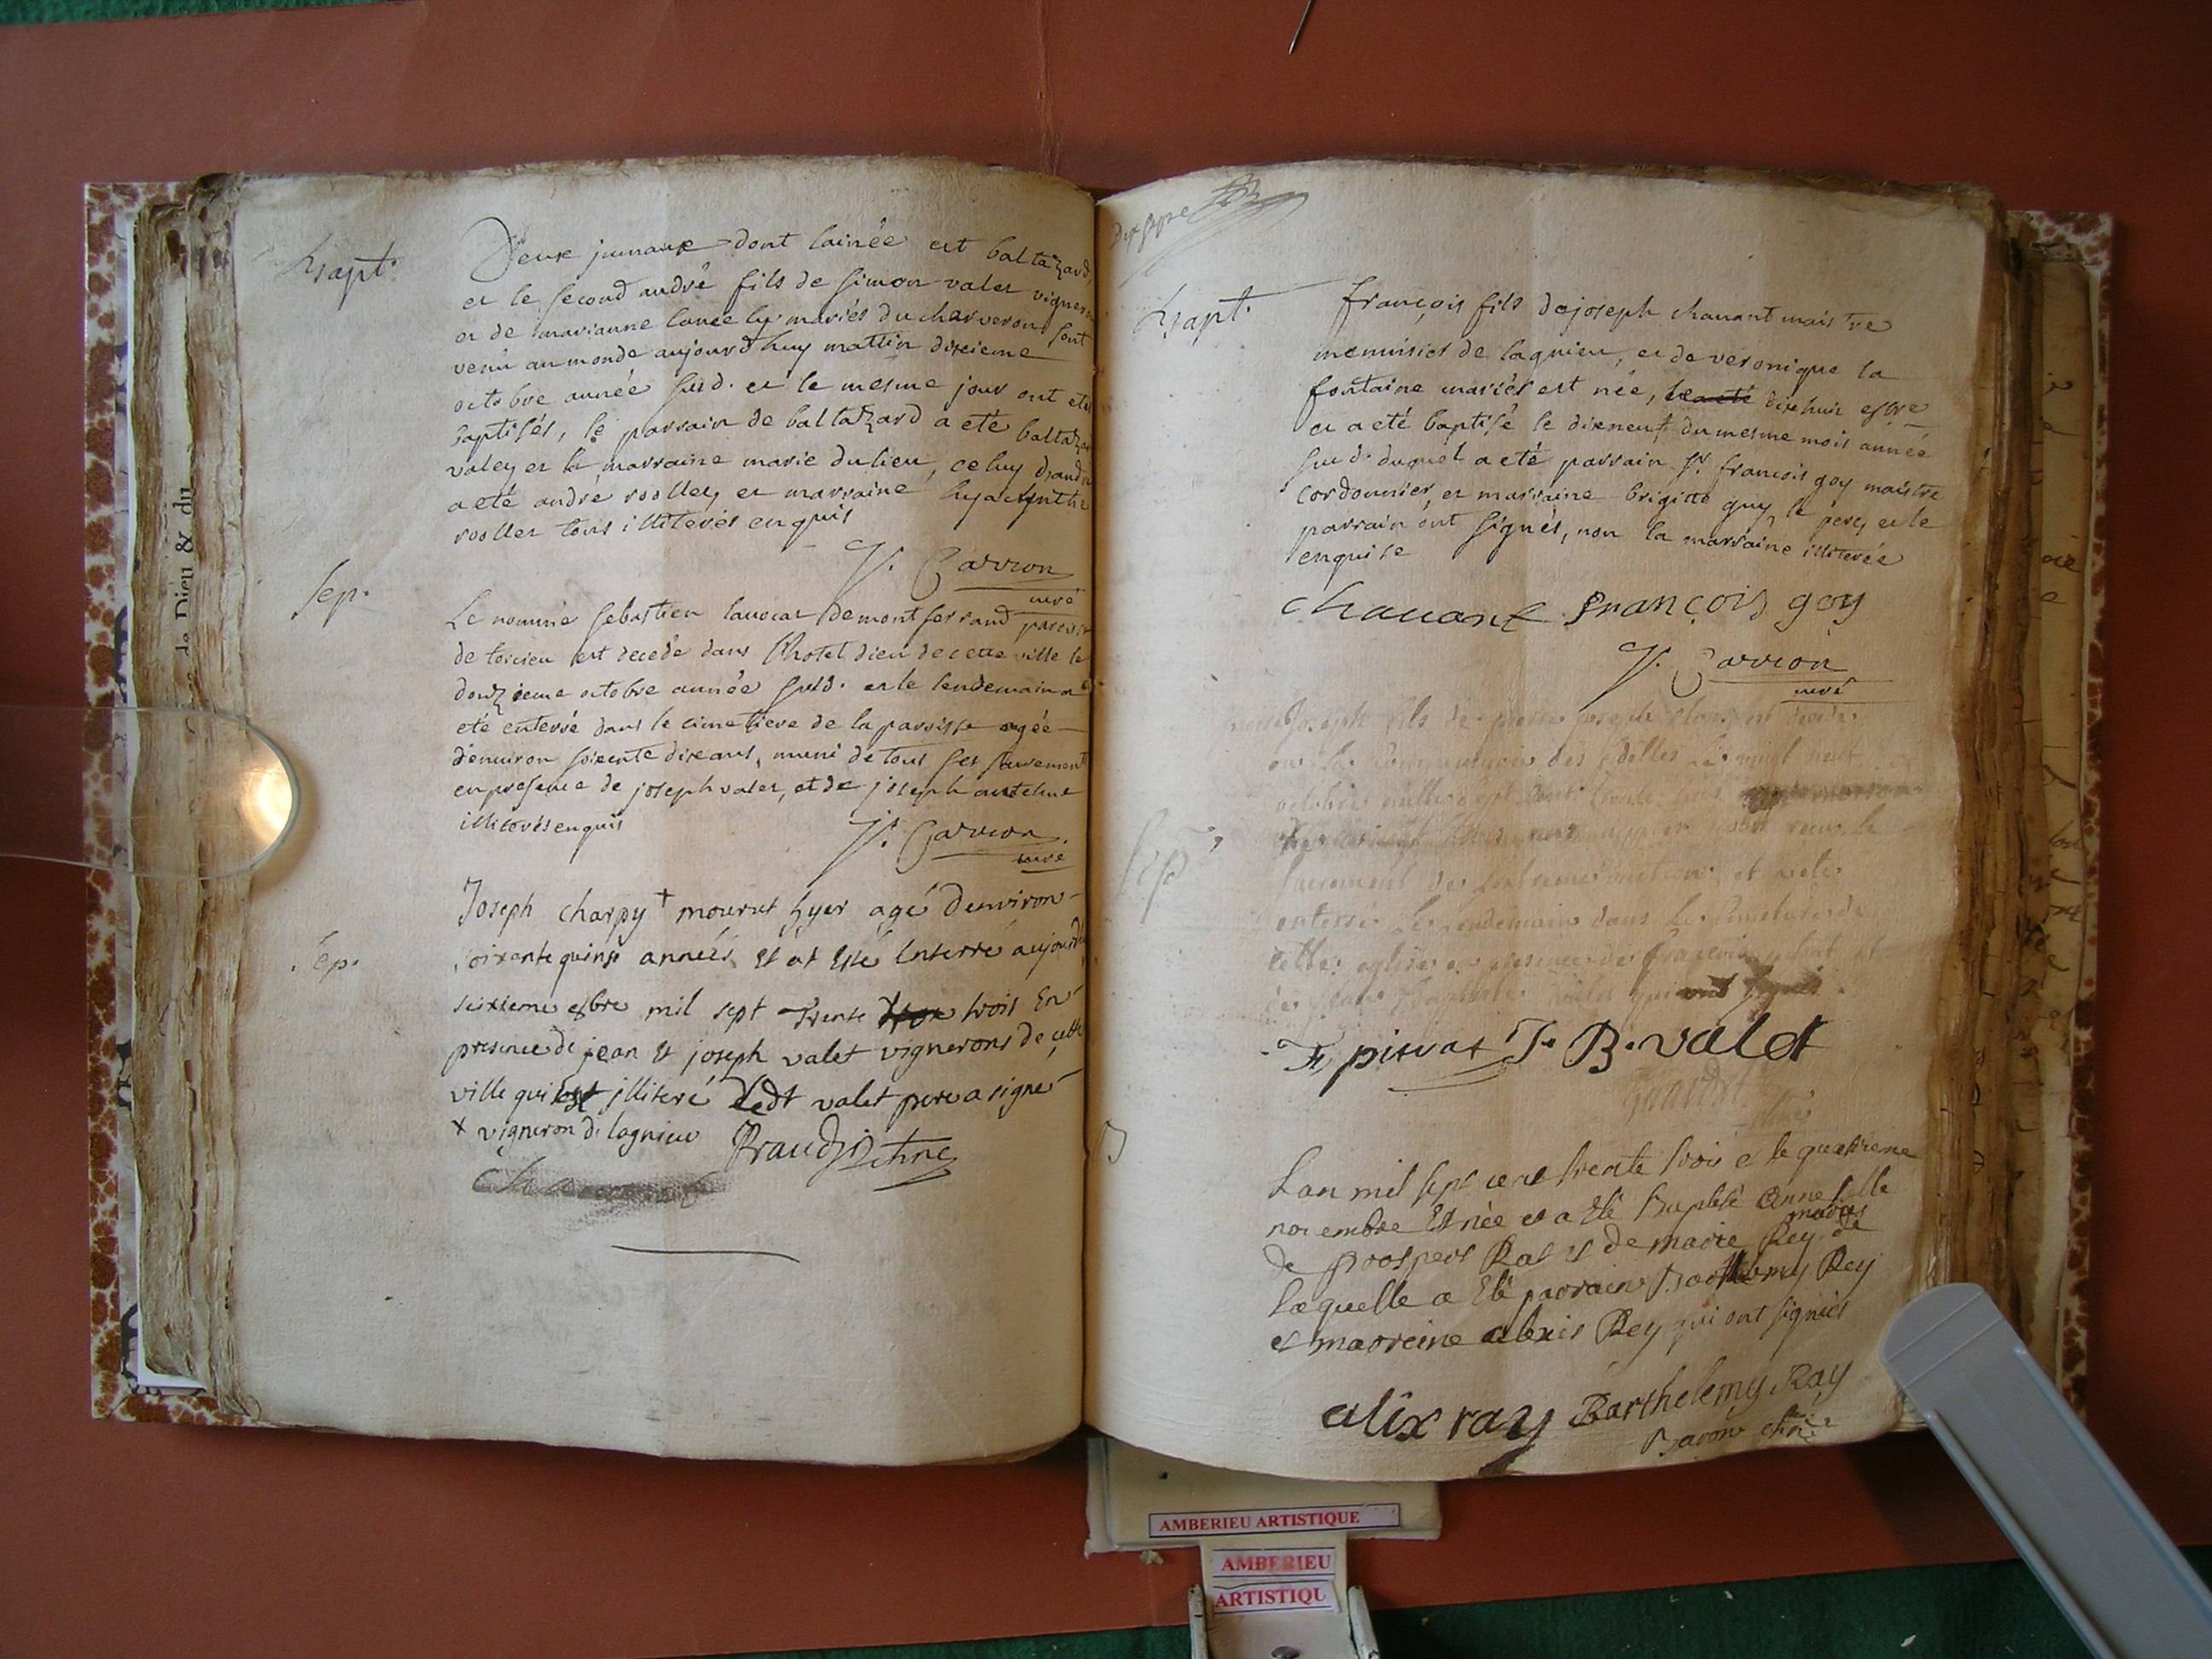 Bapt.
Deux jumaux dont lainée est baltazard
et le second andré fils de simon valet vigneron
et de marianne mariés du charveron sont
venu au monde aujourd'huy mattin dixieme
octobre année susd. et le mesme jour ont eté
baptisés, le parrain de baltazard a eté baltazar
valey et la marraine marie dulieu, celuy dandré
a eté andré rollet, et marraine hyacynthe
rollet tous illiterés enquis
J. Carrion
curé
Sep.
Le nommé sebastien lavocat de montferrand parroisse
de torcieu est decedé dans l'hotel dieu de cette ville le
douzieme octobre année susd. et le lendemain a
eté enterré dans le cimetiere de la parroisse agée
d'environ soixente dix ans, muni de tous ses sacrements
en presence de joseph valet, et de joseph anthelme
illiterés enquis
J. Carrion
curé
Sep.
Joseph charpy + mourut hyer agé denviron
soixante quinse années et at esté enterré aujourd'huy
seixieme 8bre mil sept trente trois en
presence de jean et joseph valet vignerons de cette
ville qui est illiteré ledt valet pere a signé
+ vigneron de lagnieu
de Dieu & du
Bapt.
françois fils de joseph chavant maistre
menuisier de lagnieu, et de veronique la
fontaine mariés est née, dixhuit 8bre
et a eté baptisé le dixneuf du mesme mois année
susd. duquel a eté parrain sr. françois goy maistre
cordonnier, et marraine brigitte guy, le pere, et le
parrain ont signés, non la marraine illiterée
enquise
chavant françois goy
J. Carrion
curé
Sep.
joseph fils de pierre joseph est decedé
en la Communion des fidelles le vingt neuf
octobre mille sept cent trente trois
sacrement de lextreme onction et a eté
enterré le lendemain dans le cimetiere de
cette eglise en presence de françois et
de jean Baptiste valet qui ont signés
J. B. valet
B
Lan mil sept cent trente trois e le quatrieme
novembre est née et a eté Baptisé Anne fille
de prosper Rat et de marie Rey mariés de
laquelle a eté parrain Barthelemy Rey
et marreine alexis Rey qui ont signés
alix ray Barthelemy Ray
AMBERIEU ARTISTIQUE
AMBERIEU
ARTISTIQU